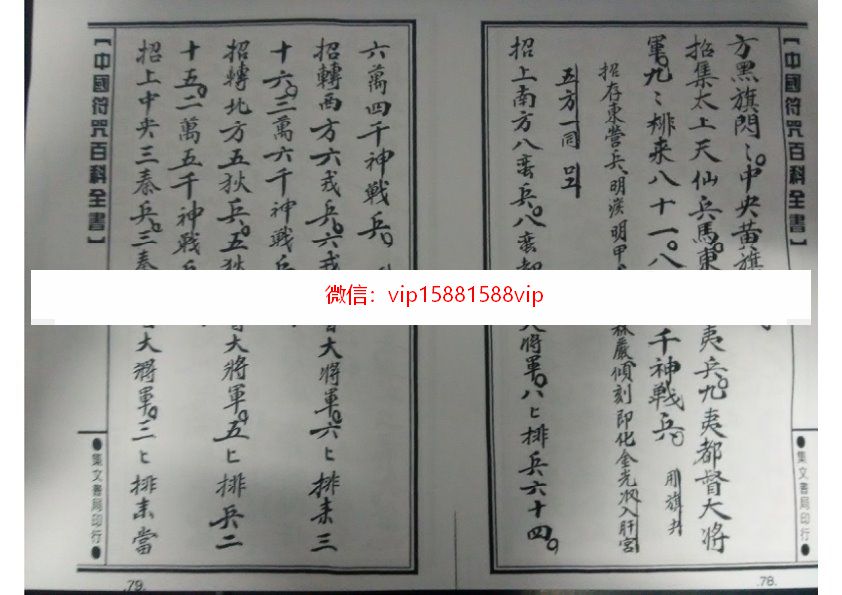 【中國符咒百科全書】
方黑旗閃〻。中央黃旗
招集太上天仙兵馬。東
夷兵。九夷都督大將
軍。九〻排来八十一。八
千神戰兵。用旗
招存東營兵。明
明甲
森嚴傾刻即化金光収入肝宮
五方一同
招上南方八蛮兵。八蛮
大將軍。八〻排兵六十四。
●集文書局印行●
.78.
【中國符咒百科全書】
六萬四千神戰兵。
招轉西方六戎兵。六戎
督大將軍。六〻排来三
十六。三萬六千神戰
招轉北方五狄兵。五狄
督大將軍。五〻排兵二
十五。二萬五千神戰兵
招上中央三秦兵。三秦
大將軍。三〻排来當
●集文書局印行●
.79.
微信：vip15881588vip